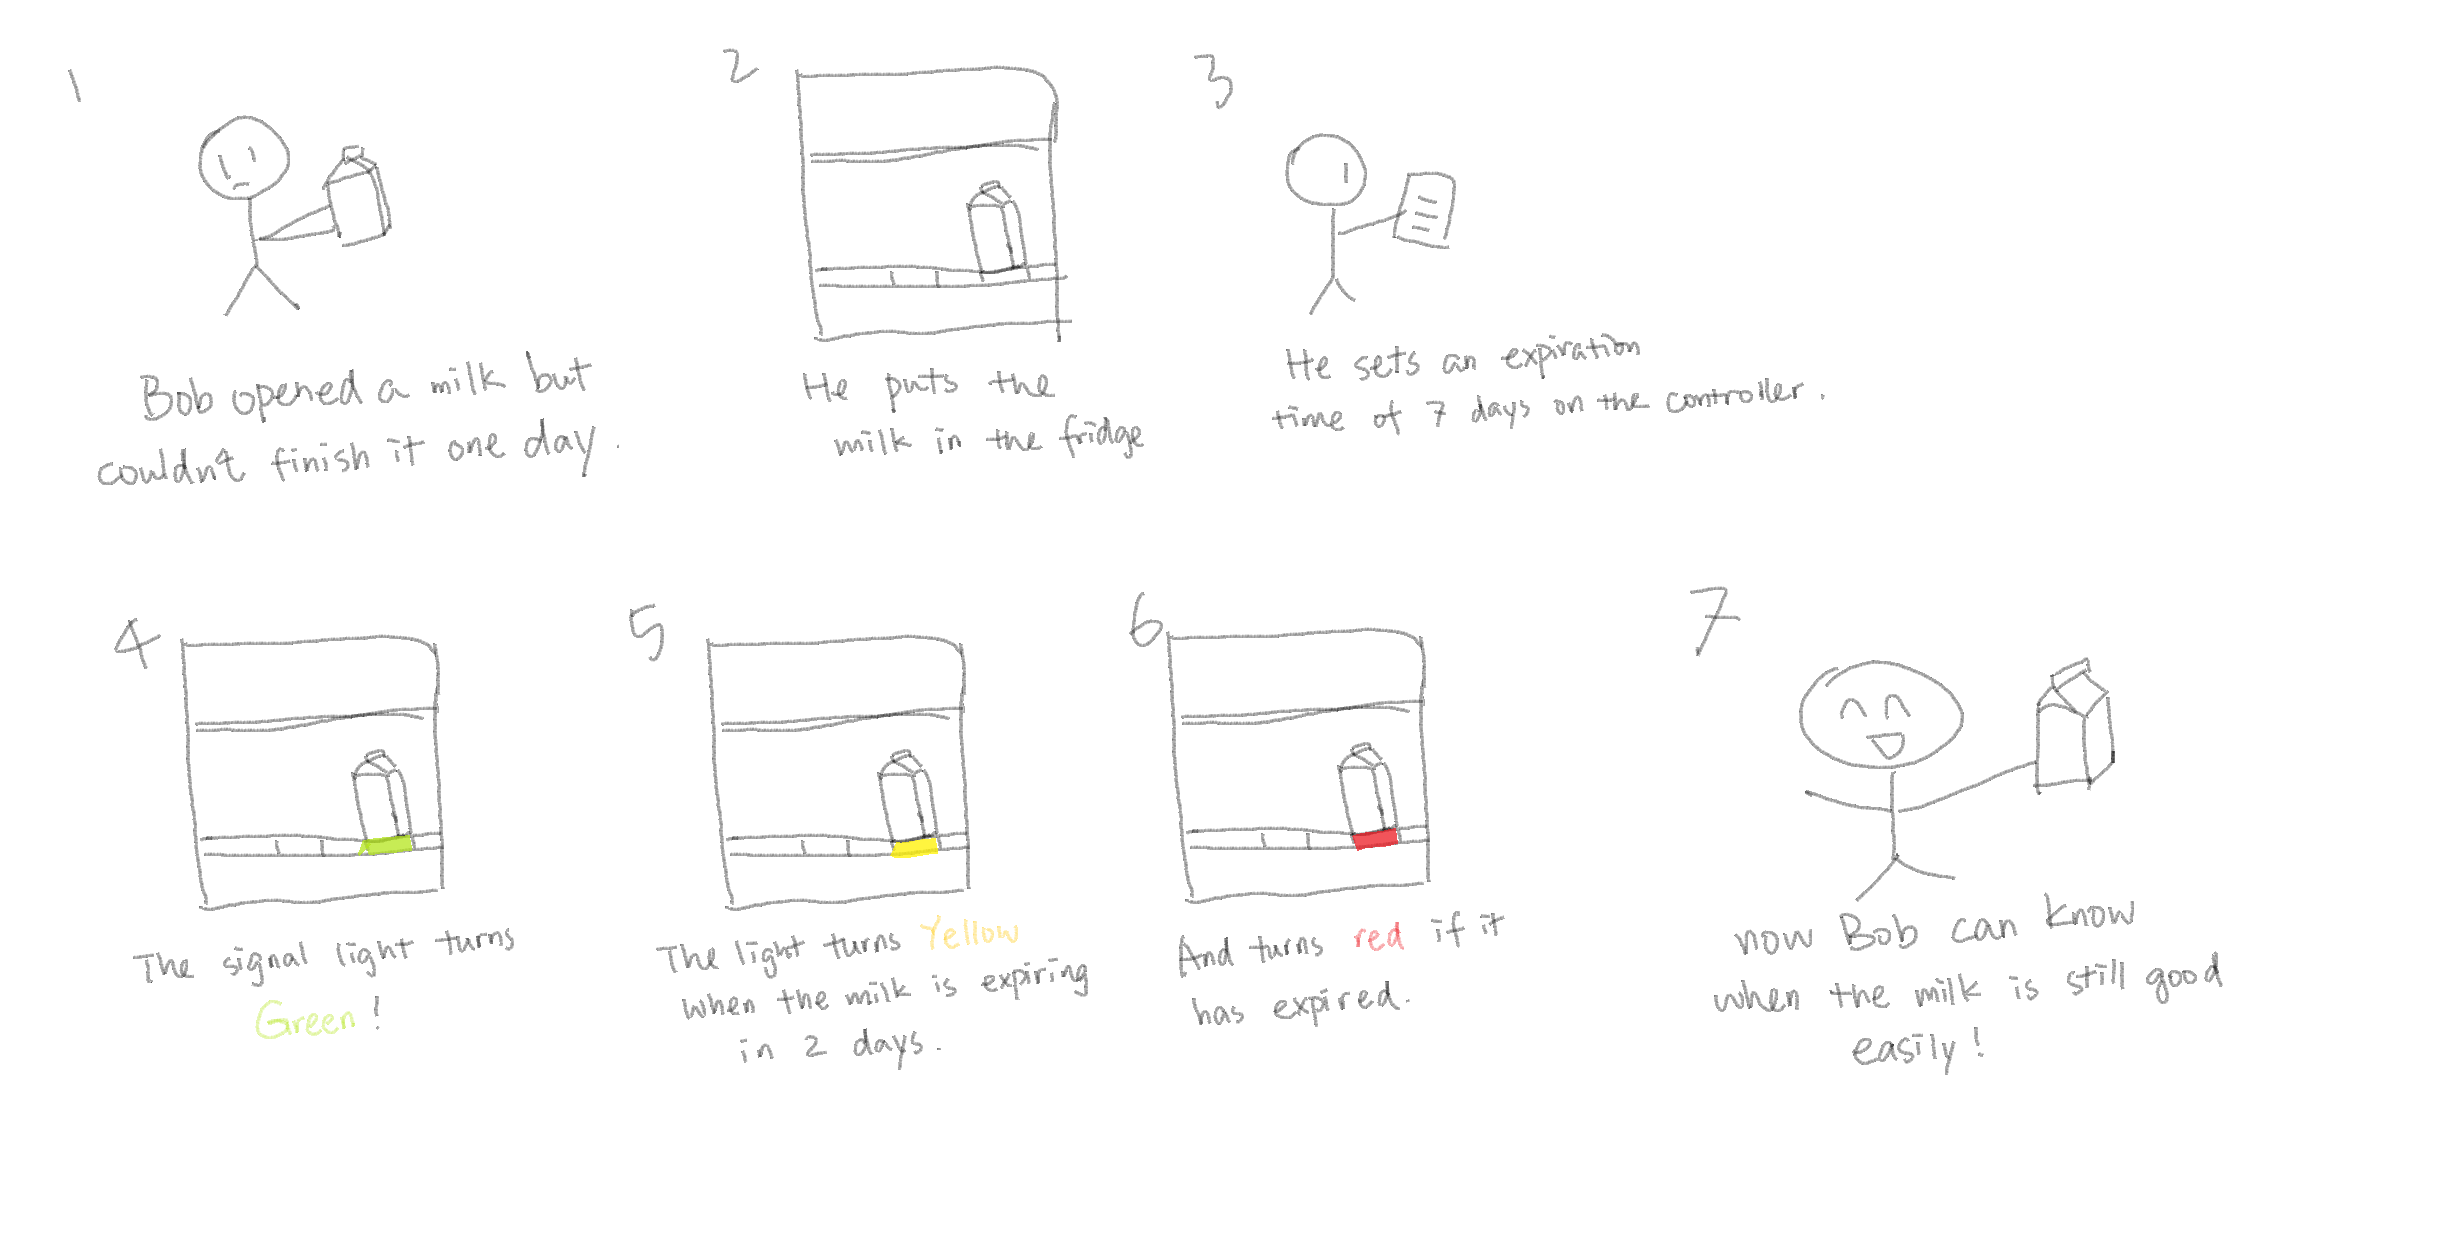 1
Bob opened a milk but
couldn't finish it one day.
2
He puts the
milk in the fridge
3
He sets an expiration
time of 7 days on the controller.
4
The signal light turns
Green!
5
The light turns Yellow
when the milk is expiring
in 2 days.
6
And turns red if it
has expired.
7
now Bob can know
when the milk is still good
easily!